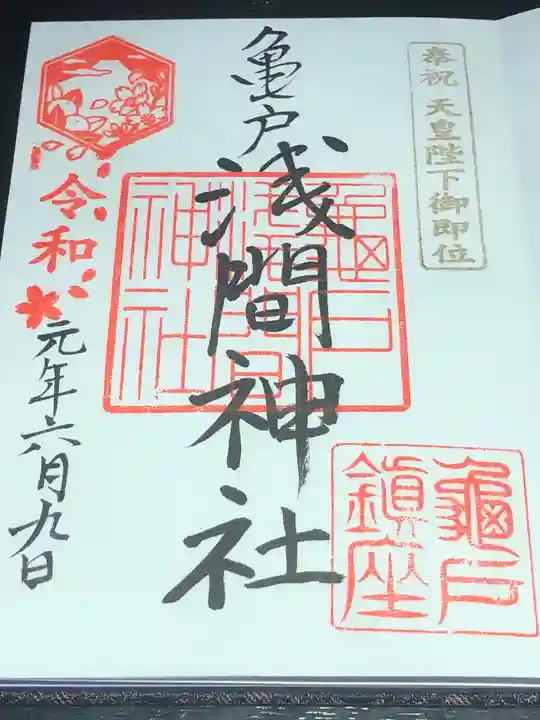 奉祝 天皇陛下御即位
亀戸浅間神社
龜戸浅間神社
龜戸鎮座
令和元年六月九日